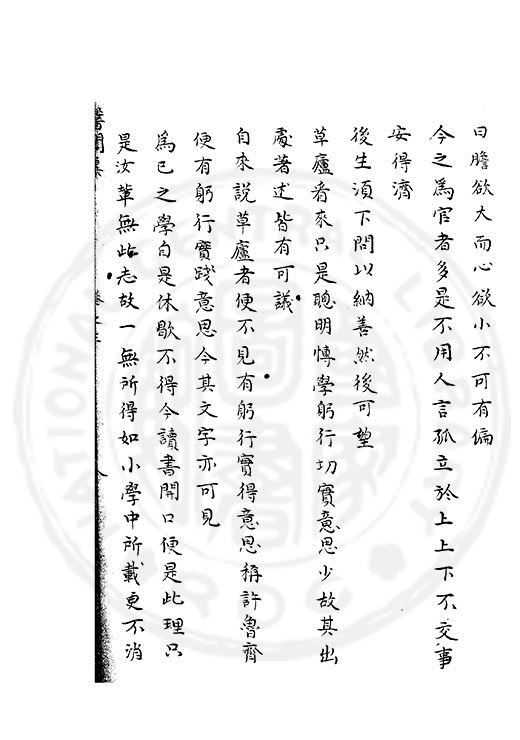 曰膽欲大而心欲小不可有偏
今之為官者多是不用人言孤立於上上下不交事
安得濟
後生須下問以納善然後可望
草廬看來只是聰明愽學躬行切實意思少故其出
處著述皆有可議
自來說草廬者便不見有躬行實得意思稱許魯齊
便有躬行實踐意思今其文字亦可見
為已之學自是休歇不得今讀書開口便是此理只
是汝輩無此志故一無所得如小學中所載更不消